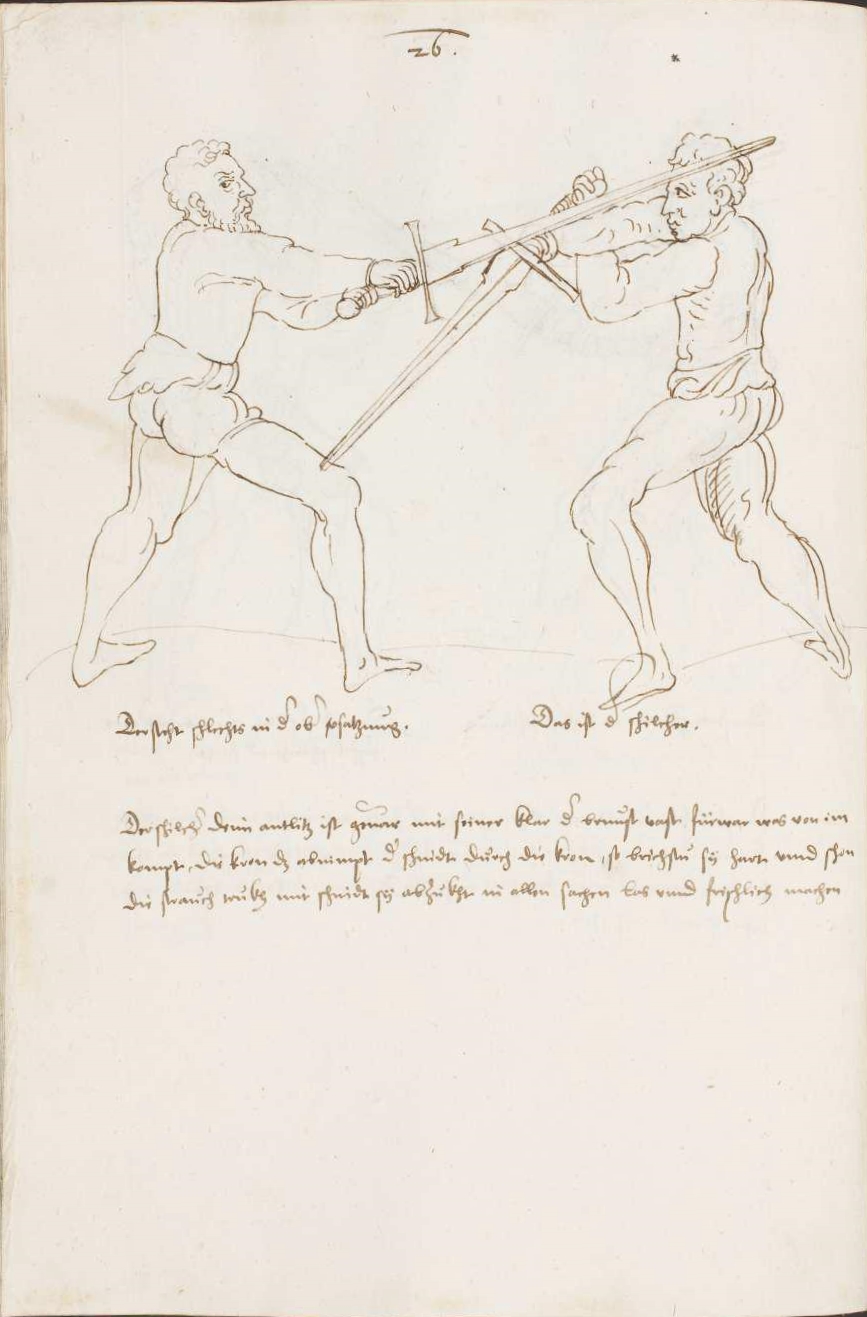 26.
Der sicht schlechts in d' ob' ꝟsatzung.
Das ist d' schilcher.
Der schilch' dem antlitz ist gevar mit seiner klar d' brust vast fürwar was von im
kompt, die kron dz abnimpt d' schnidt durch die kron, so brichstu sÿ hart vnnd schon
die straüch trükh mit schnidt sÿ abzükht in allen sachen las vnnd frischlich machen